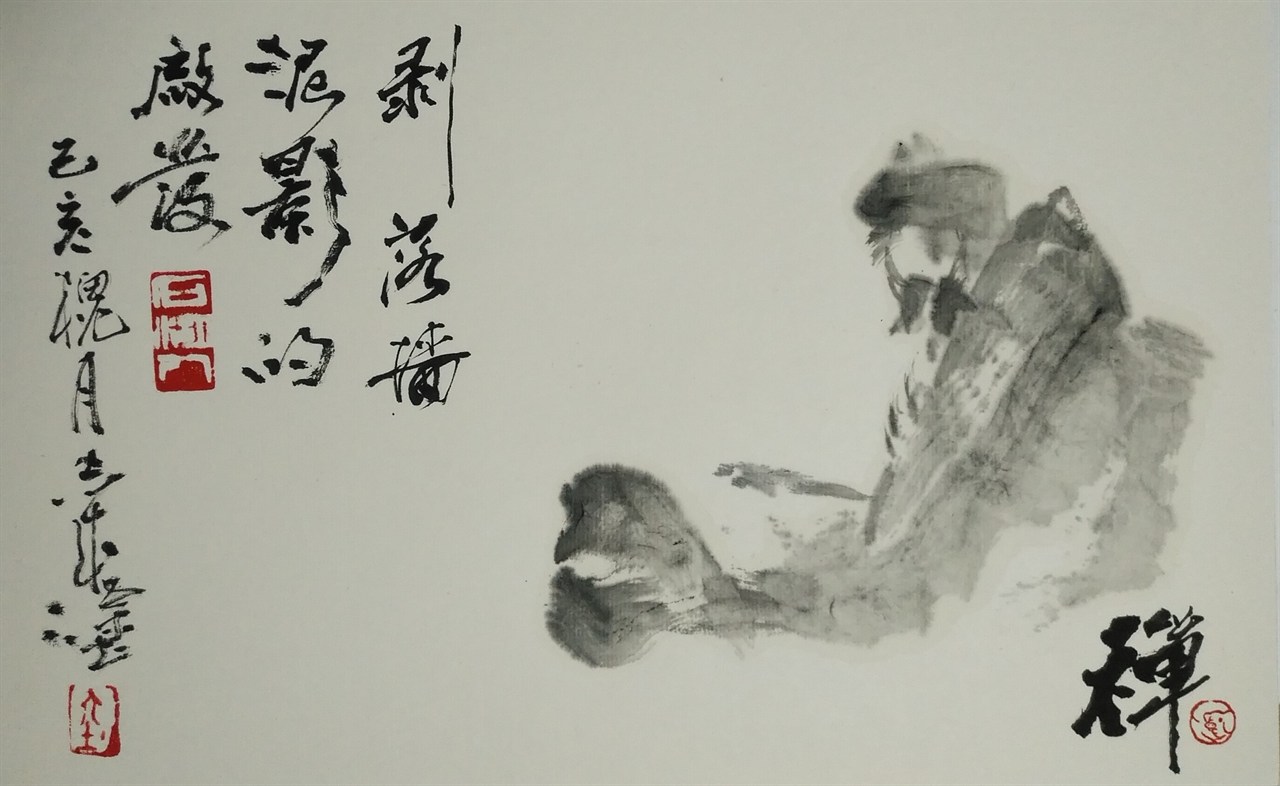 剥落墙
泥影的
啟發
己亥槐月
禪